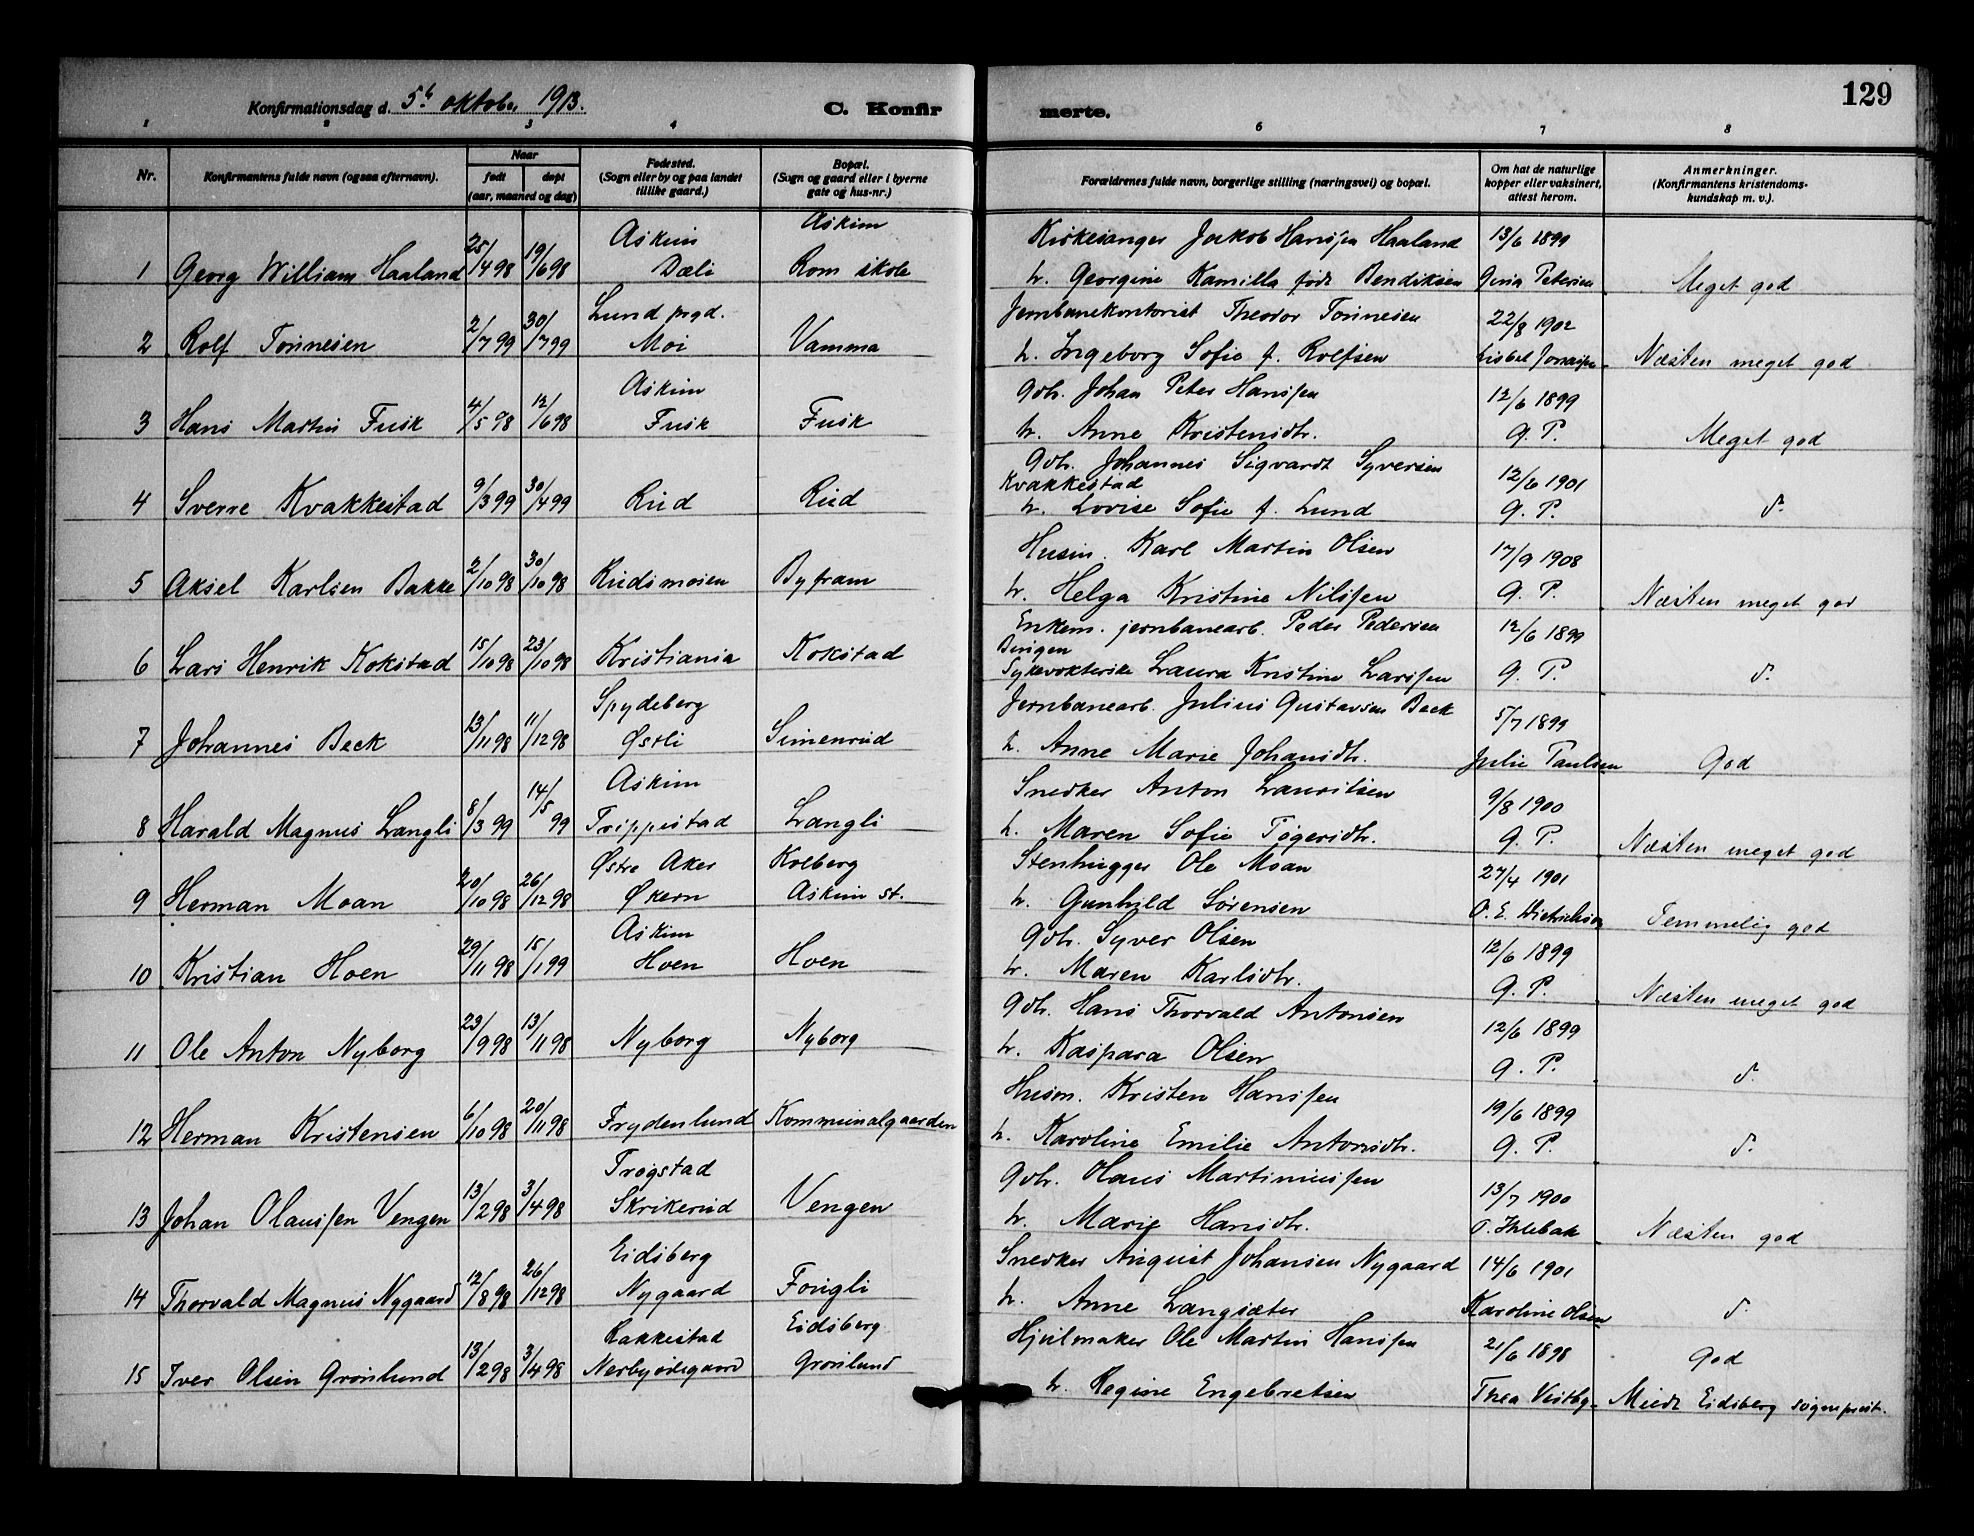 129
Konfirmationsdag d. 5te oktober 1913.
C. Konfirmerte.
1 2 3 4 6 7 8
Nr.
Konfirmantens fulde navn (ogsaa efternavn).
Naar
født døpt
(aar, maaned og dag)
Fødested.
(Sogn eller by og paa landet
tillike gaard.)
Bopæl.
(Sogn og gaard eller i byerne
gate og hus-nr.)
Forældrenes fulde navn, borgerlige stilling (næringsvei) og bopæl.
Om hat de naturlige
kopper eller vaksinert,
attest herom.
Anmerkninger.
(Konfirmantens kristendoms-
kundskap m. v.).
Askim Askim Kirkesanger Jakob Hansen Haaland 13/6 1899
1 Georg William Haaland 25/4 98 19/6 98 Dæli Rom skole h. Georgine Kamilla født Bendiksen Gina Petersen Meget god
Lund prgd. Jernbanekontorist Theodor Tönnesen 22/8 1902
2 Rolf Tönnesen 2/7 99 30/7 99 Moi Vamma h. Ingeborg Sofie f. Rolfsen Lisbet Jonassen Næsten meget god
Askim Gdbr. Johan Peter Hansen 12/6 1899
3 Hans Martin Fusk 4/5 98 12/6 98 Fusk Fusk h. Anne Kristensdtr. G. P. Meget god
Gdbr. Johannes Sigvardt Syversen
Kvakkestad 12/6 1901
4 Sverre Kvakkestad 9/3 99 30/4 99 Rud Rud h. Lovise Sofie f. Lund G. P. d.
Husm. Karl Martin Olsen 17/9 1908
5 Aksel Karlsen Bakke 2/10 98 30/10 98 Rudsmoien Byfram h. Helga Kristine Nilsen G. P. Næsten meget god
Enkem. jernbanearb. Peder Pedersen
12/6 1899
6 Lars Henrik Kokstad 15/10 98 23/10 98 Kristiania Kokstad Sykevokterske Laura Kristine Larsen G. P. d.
Spydeberg Jernbanearb. Julius Gustavsen Beck 5/7 1899
7 Johannes Beck 13/11 98 11/12 98 Østli Simenrud h. Anne Marie Johansdtr. Julie Paulsen God
Askim Snedker Anton Lauritsen 9/8 1900
8 Harald Magnus Langli 8/3 99 14/5 99 Trippestad Langli h. Maren Sofie Tögersdtr. G. P. Næsten meget god
Østre Aker Kolberg Stenhugger Ole Moan 27/4 1901
9 Herman Moan 20/10 98 26/12 98 Økern Askim st. h. Gunhild Sørensen O. E. Dietrichson Temmelig god
Askim Gdbr. Syver Olsen 12/6 1899
10 Kristian Hoen 29/11 98 15/1 99 Hoen Hoen h. Maren Karlsdtr. G. P. Næsten meget god
Gdbr. Hans Thorvald Antonsen 12/6 1899
11 Ole Anton Nyborg 23/9 98 13/11 98 Nyborg Nyborg h. Kaspara Olsen G. P. d.
Husm. Kristen Hansen 19/6 1899
12 Herman Kristensen 6/10 98 20/11 98 Frydenlund Kommunalgaarden h. Karoline Emilie Antonsdtr. G. P. d.
Trøgstad Gdbr. Olaus Martinussen 13/7 1900
13 Johan Olaussen Vengen 13/2 98 3/4 98 Skrikerud Vengen h. Marie Hansdtr. Næsten god
Eidsberg Snedker August Johansen Nygaard 14/6 1901
14 Thorvald Magnus Nygaard 12/8 98 26/12 98 Nygaard Fongli h. Anne Langsæter Karoline Olsen d.
Rakkestad Eidsberg Hjulmaker Ole Martin Hansen 21/6 1898 God
15 Iver Olsen Grønlund 13/2 98 3/4 98 Nerbyødegaard Grønlund h. Regine Engebretsen Thea Vestby Meldt Eidsberg sogneprest.